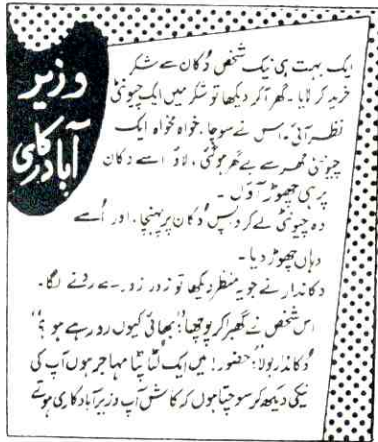 وزیر
آبادکاری
ایک بہت ہی نیک شخص دُکان سے شکر
خرید کر لایا۔ گھر آکر دیکھا تو شکر میں ایک چیونٹی
نظر آئی۔ اس نے سوچا، خواہ مخواہ ایک
چیونٹی گھر سے بے گھر ہوگئی، لاؤ اسے دکان
پر ہی چھوڑ آؤں۔
وہ چیونٹی لے کر واپس دُکان پر پہنچا، اور اُسے
وہاں چھوڑ دیا۔
دکاندار نے جو یہ منظر دیکھا تو زور زور سے رونے لگا۔
اس شخص نے گھبرا کر پوچھا: "بھائی کیوں رو رہے ہو؟"
دُکاندار بولا: "حضور! میں ایک لُٹا پِٹا مہاجر ہوں آپ کی
نیکی دیکھ کر سوچتا ہوں کہ کاش آپ وزیر آبادکاری ہوتے